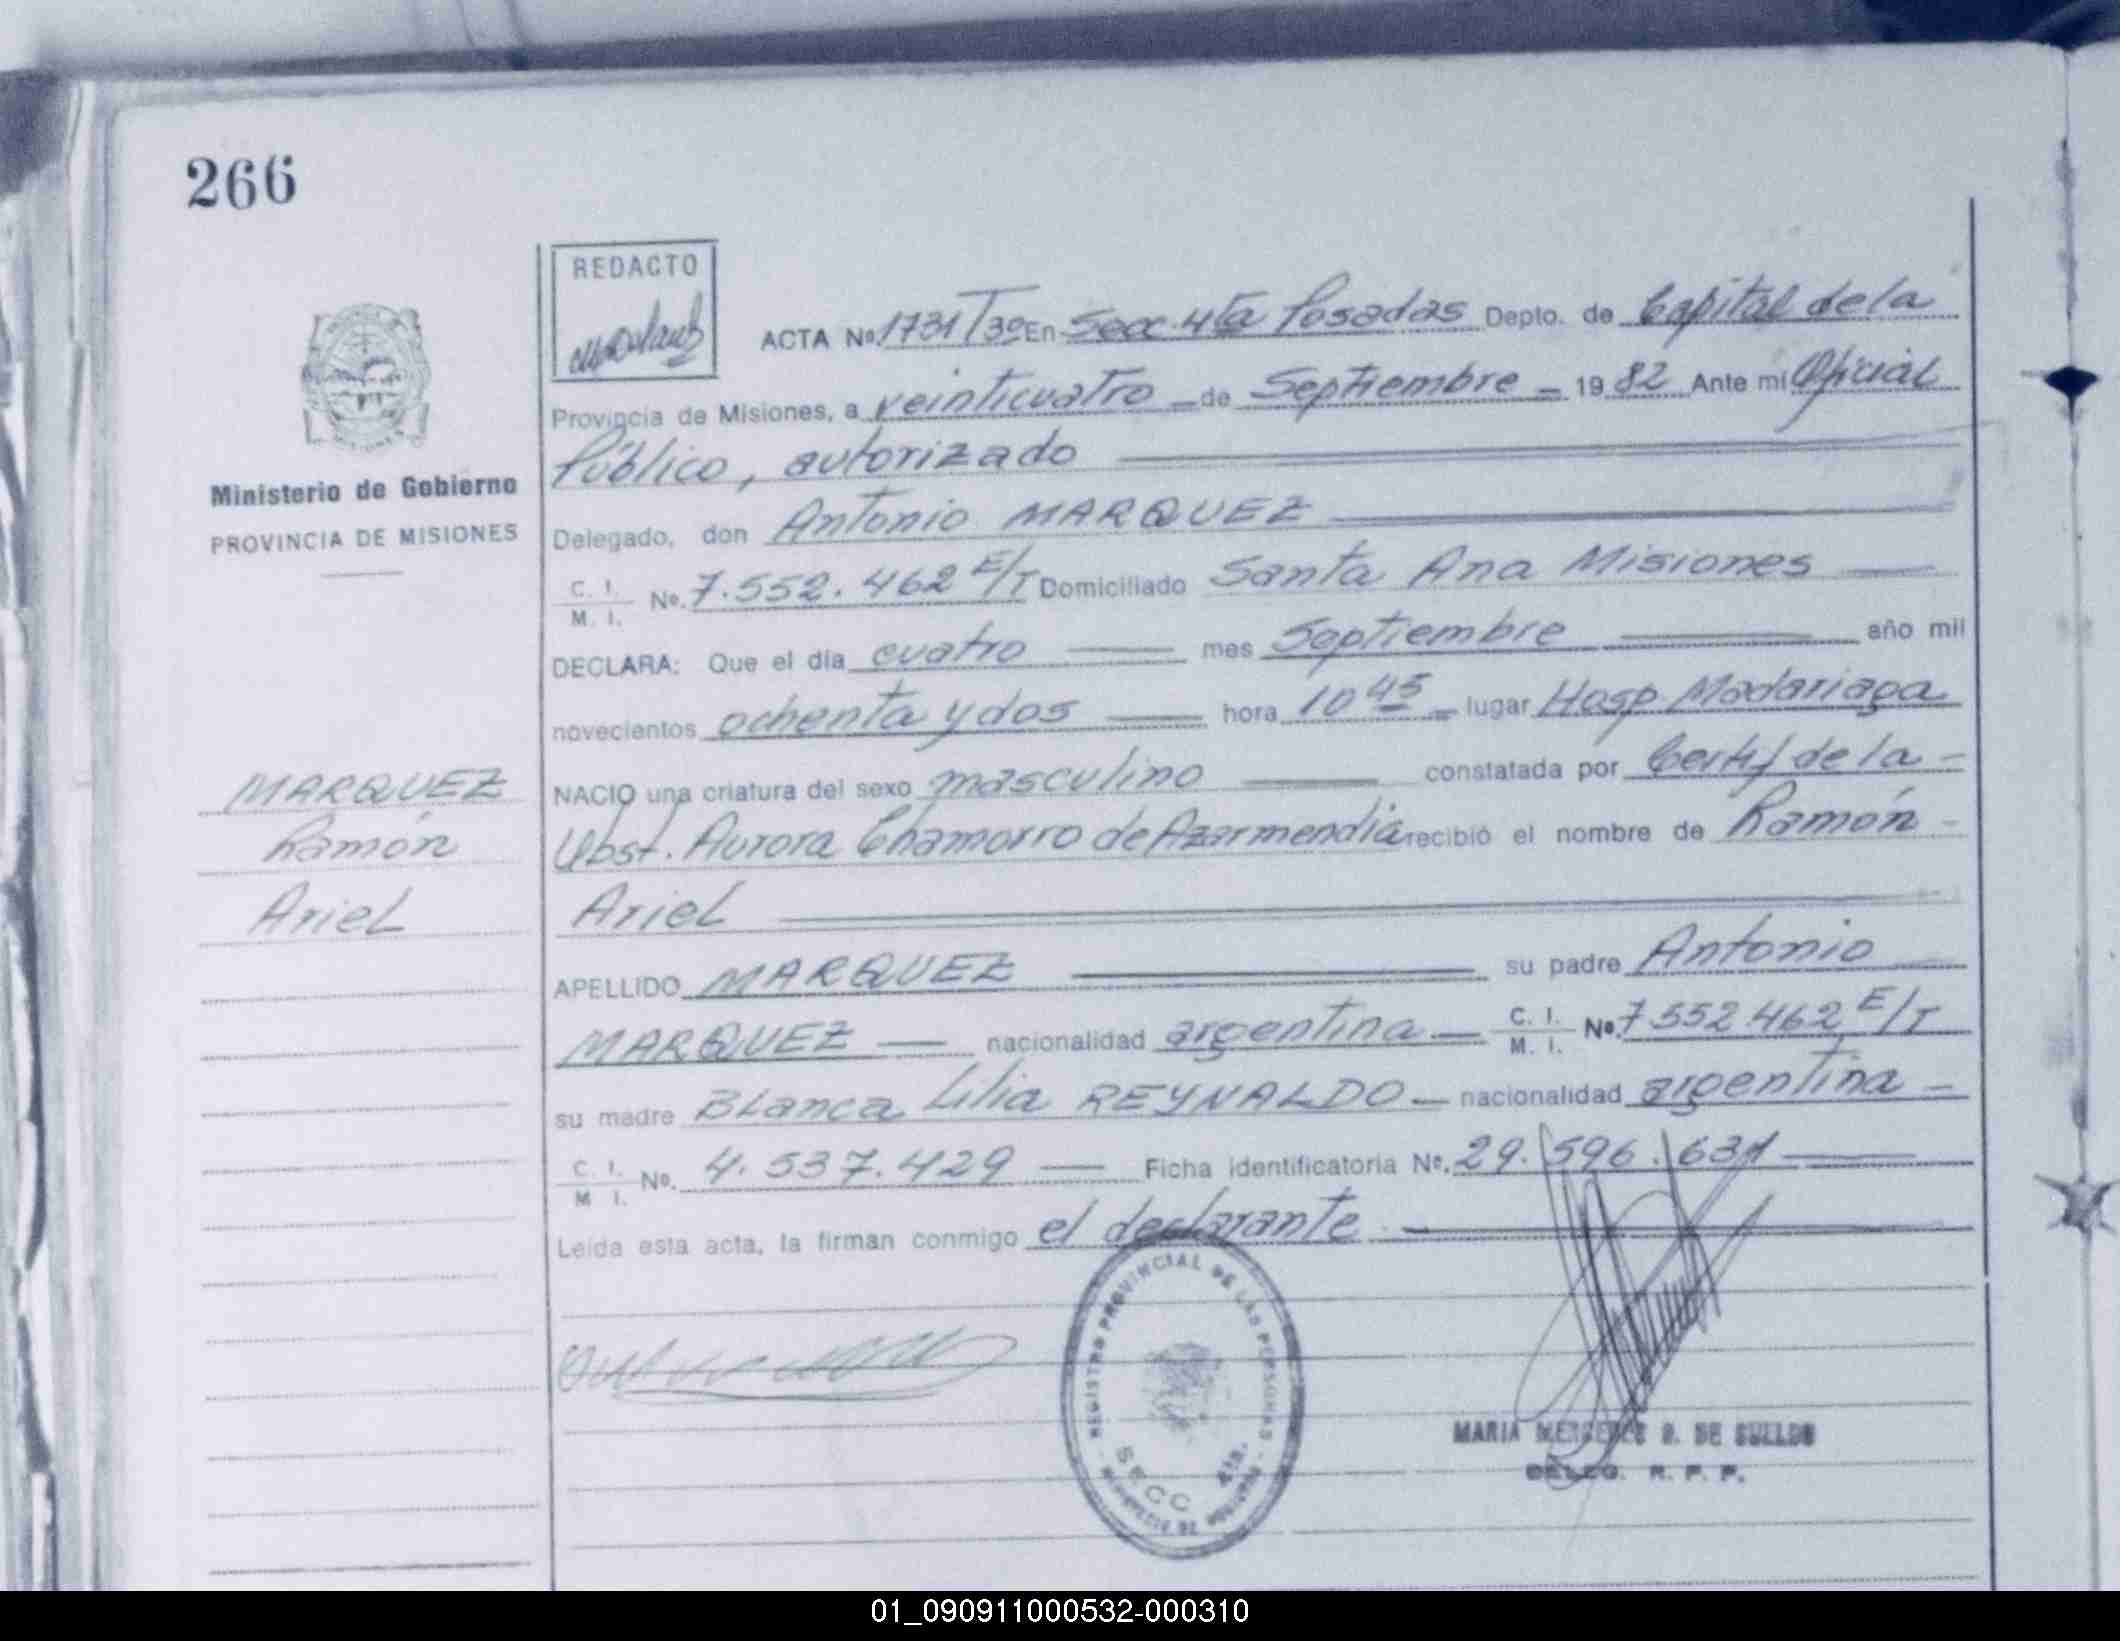 266
REDACTO
ACTA Nº 1731 T 3º En Secc. 4ta Posadas Depto. de Capital de la
Provincia de Misiones, a veinticuatro de Septiembre 1982 Ante mí Oficial
Público, autorizado
Ministerio de Gobierno
PROVINCIA DE MISIONES
Delegado, don Antonio MARQUEZ
C. I. M. I. Nº. 7.552.462 E/T Domiciliado Santa Ana Misiones
DECLARA: Que el día cuatro mes Septiembre año mil
novecientos ochenta y dos hora 10 45 lugar Hosp. Madariaga
MARQUEZ
Ramón
Ariel
NACIO una criatura del sexo masculino constatada por Certif de la
Obst. Aurora Chamorro de Azarmendia recibió el nombre de Ramón
Ariel
APELLIDO MARQUEZ su padre Antonio
MARQUEZ nacionalidad argentina C. I. M. I. Nº. 7552462 E/T
su madre Blanca Lilia REYNALDO nacionalidad argentina
C. I. M I. Nº. 4.537.429 Ficha identificatoria Nº. 29.596.631
Leída esta acta, la firman conmigo el declarante
REGISTRO PROVINCIAL DE LAS PERSONAS
SECC 4ta.
MARIA MERCEDES DE
DELEG. R. P. P.
01_090911000532-000310